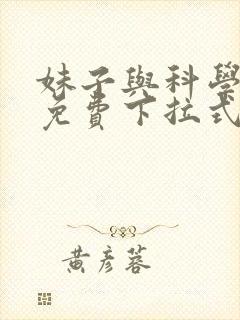 妹子與科學
免費下拉式
黃彥蓉